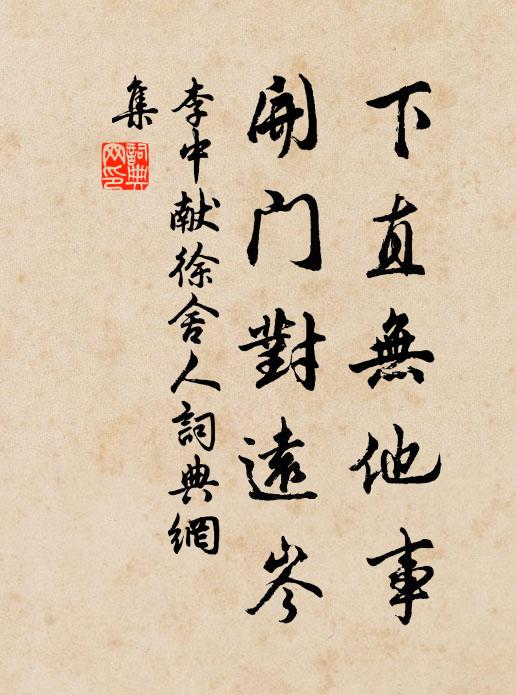 下直無他事
開門對遠岑
李中献徐舍人詞典網
集
詞典網印